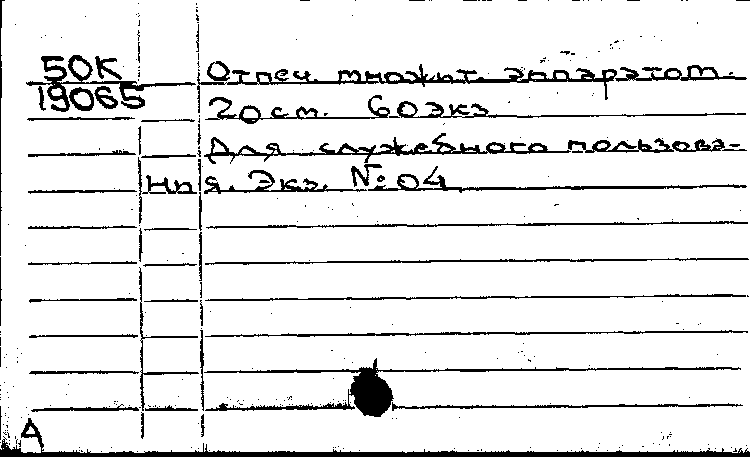 50К Отпеч. множит. аппаратом.
19065 20 см. 60 экз
Для служебного пользова-
ния. Экз. № 04
А